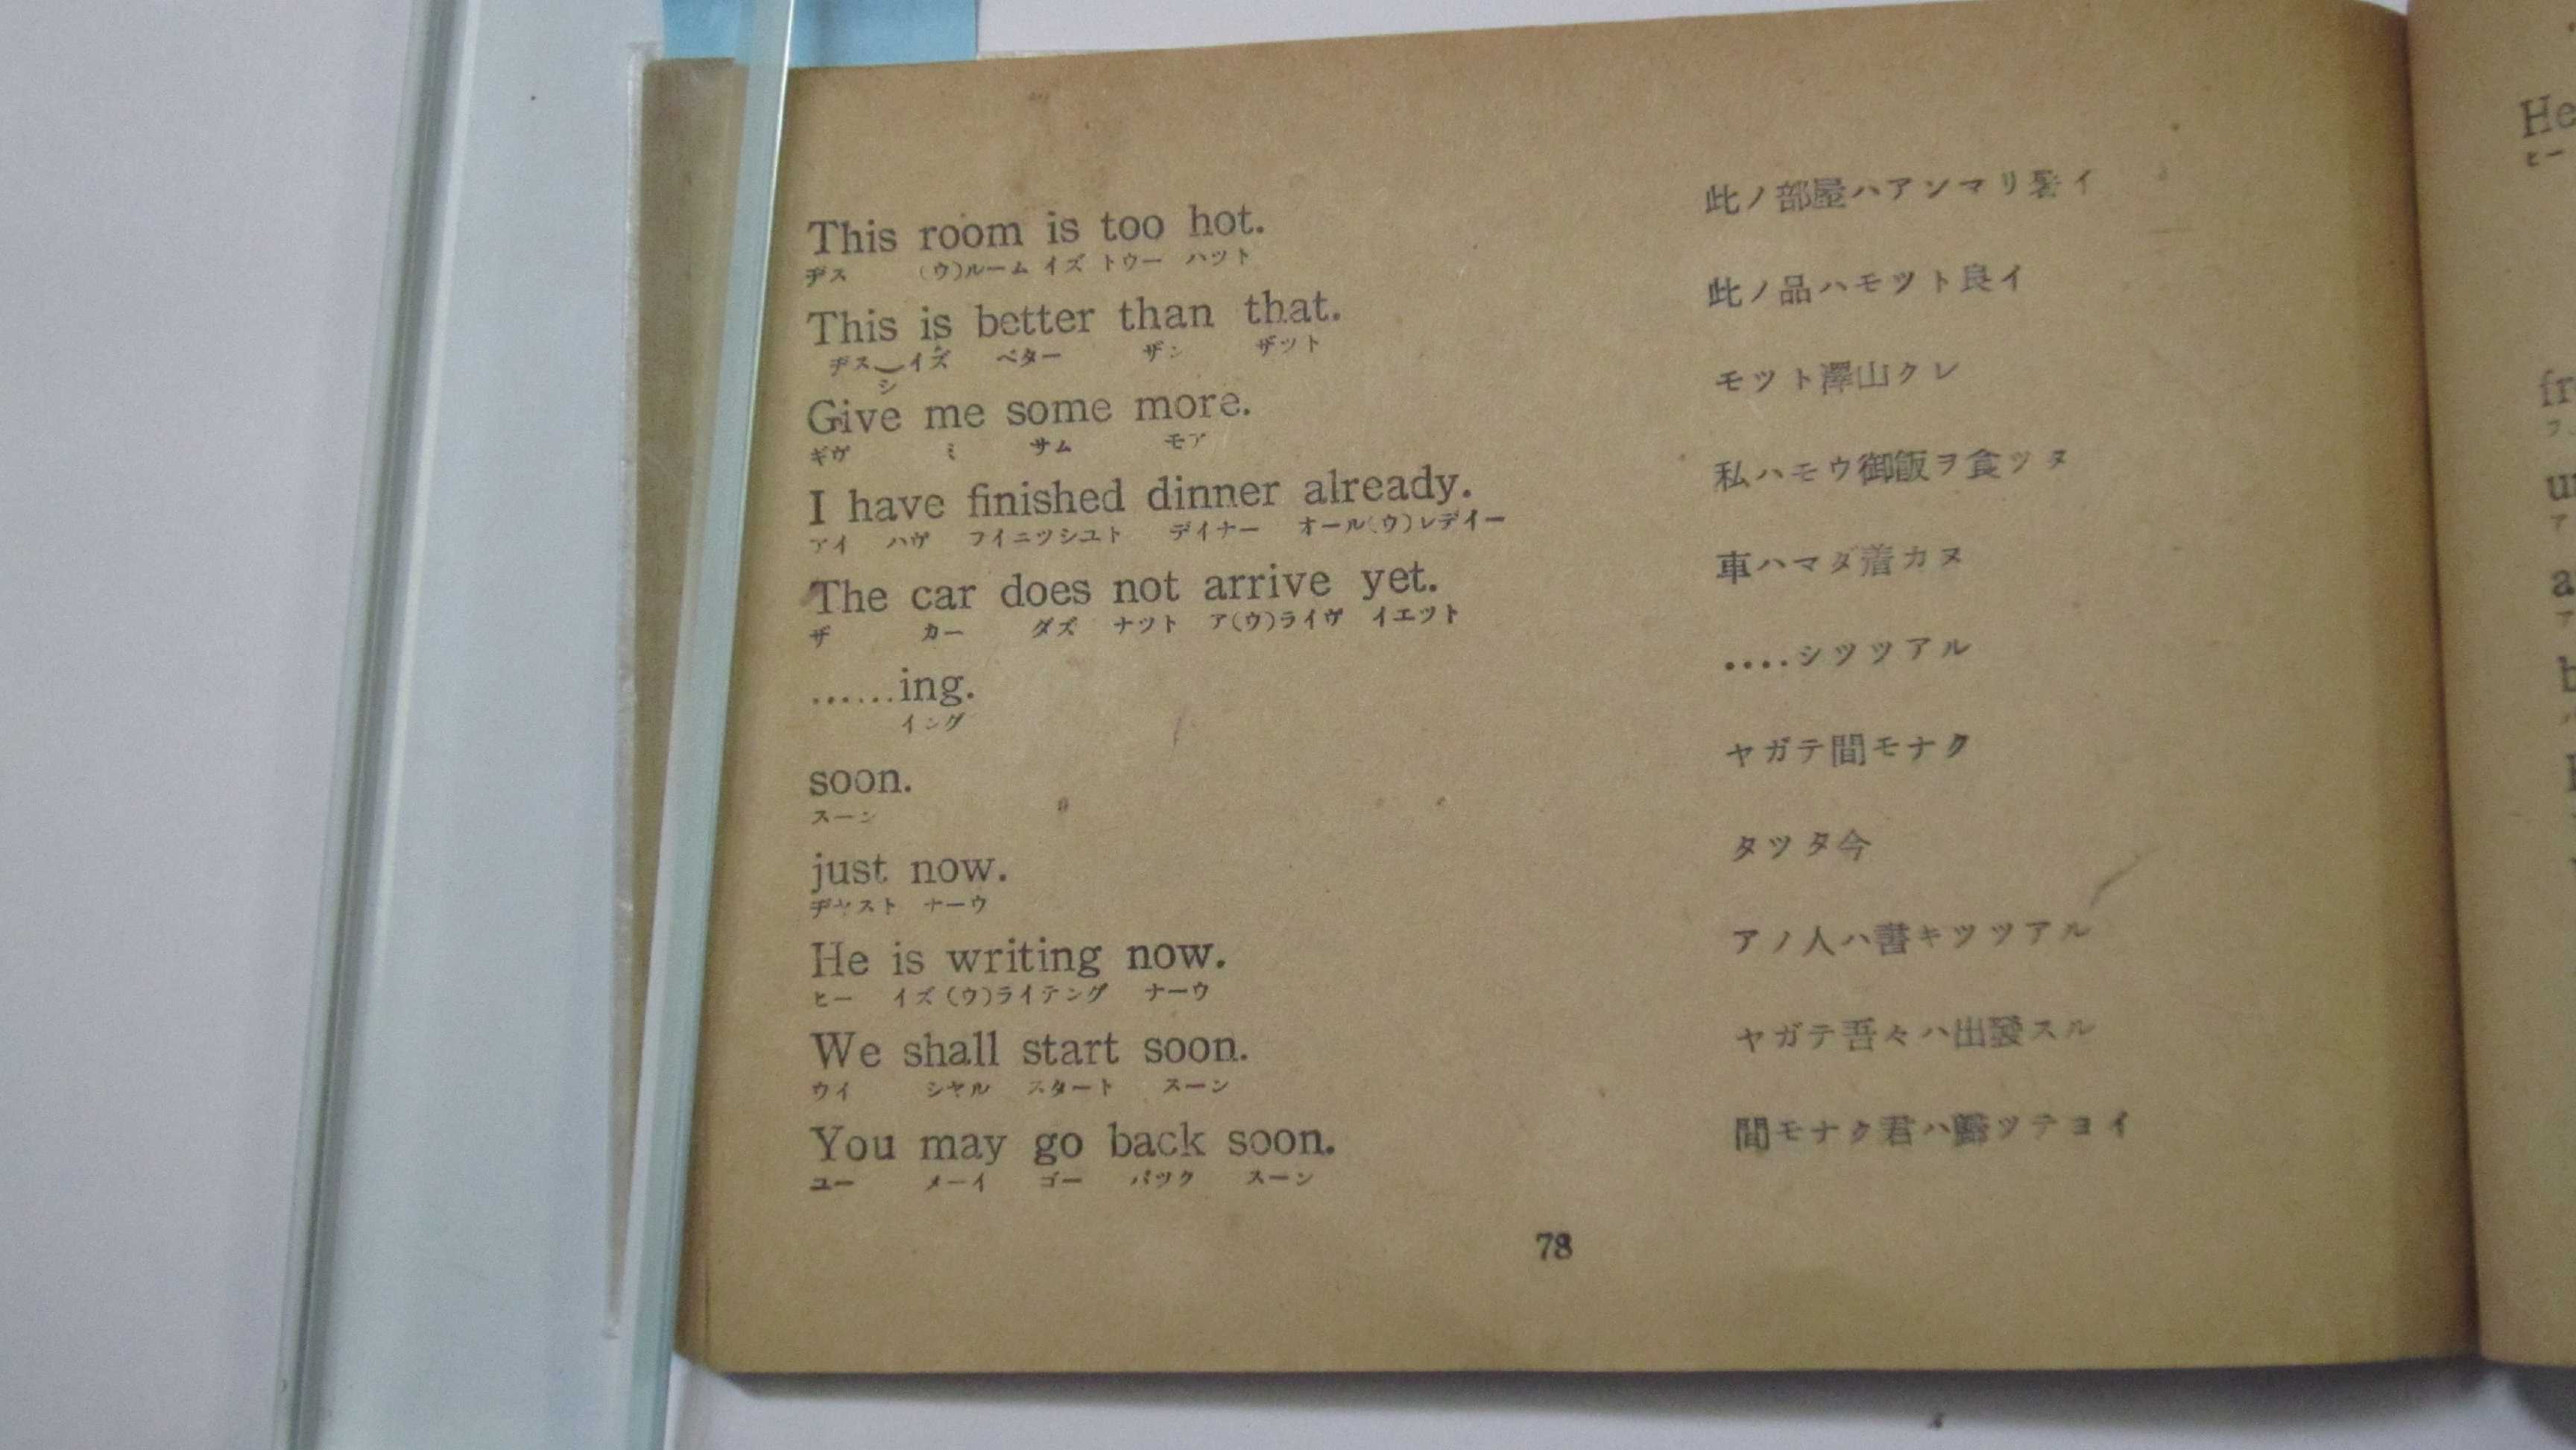 This room is too hot.
ヂス (ウ)ルーム イズ トウー ハツト
此ノ部屋ハアンマリ暑イ
This is better than that.
ヂス イズ ベター ザン ザツト
シ
此ノ品ハモツト良イ
Give me some more.
ギヴ ミ サム モア
モツト澤山クレ
I have finished dinner already.
アイ ハヴ フイニツシユト デイナー オール(ウ)レデイー
私ハモウ御飯ヲ食ツタ
The car does not arrive yet.
ザ カー ダズ ナツト ア(ウ)ライヴ イエツト
車ハマダ着カヌ
......ing.
イング
....シツツアル
soon.
スーン
ヤガテ間モナク
just now.
ヂヤスト ナーウ
タツタ今
He is writing now.
ヒー イズ (ウ)ライテング ナーウ
アノ人ハ書キツツアル
We shall start soon.
ウイ シヤル スタート スーン
ヤガテ吾々ハ出發スル
You may go back soon.
ユー メーイ ゴー バツク スーン
間モナク君ハ歸ツテヨイ
78
He
ヒー
fr